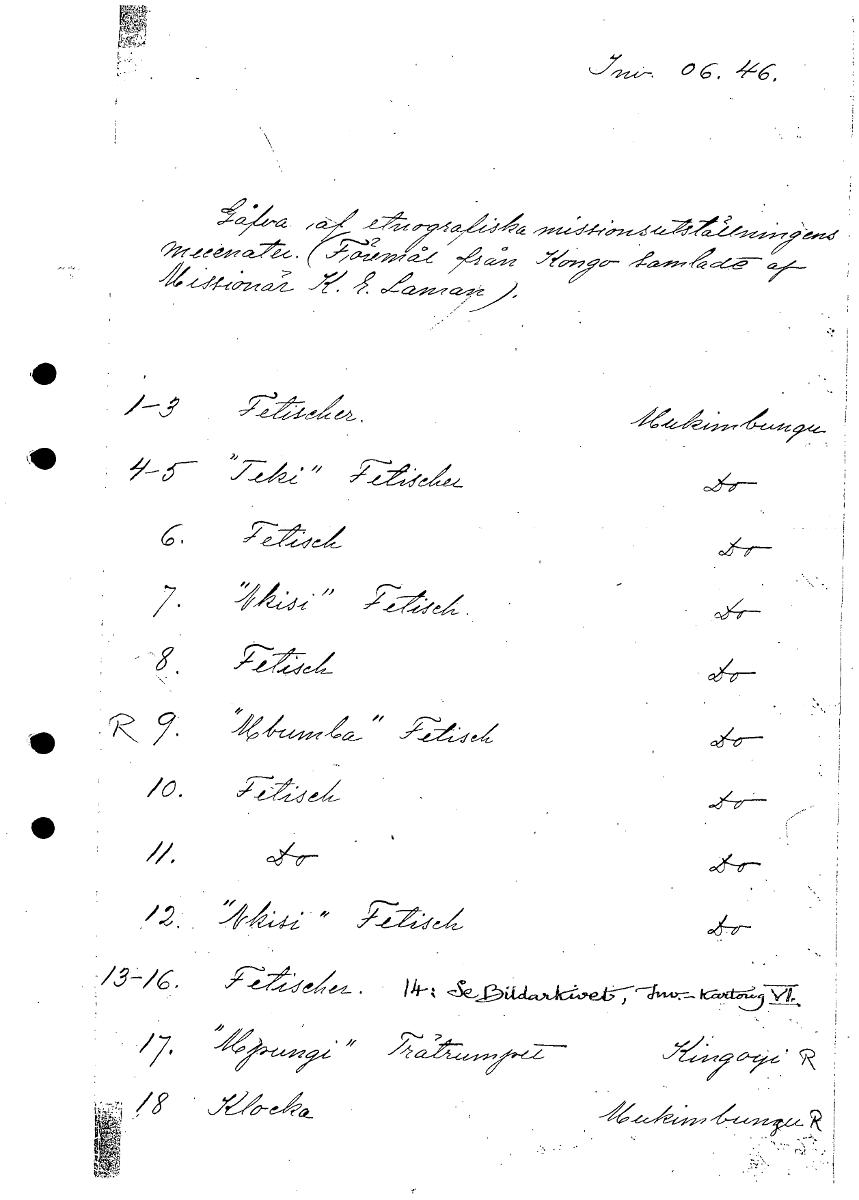 Inv. 06.46.
Gåfva af etnografiska missionsutställningens
mecenater. (Föremål från Kongo samlade af
Missionär K. E. Laman).
1-3 Fetischer. Mukimbungu
4-5 "Teki" Fetischer Do
6. Fetisch Do
7. "Nkisi" Fetisch. Do
8. Fetisch Do
R 9. "Mbumba" Fetisch Do
10. Fetisch Do
11. Do Do
12. "Nkisi" Fetisch Do
13-16. Fetischer. 14: Se Bildarkivet, Inv.-Kartong VI.
17. "Mpungi" Trätrumpet Kingoyi R
18 Klocka Mukimbungu R